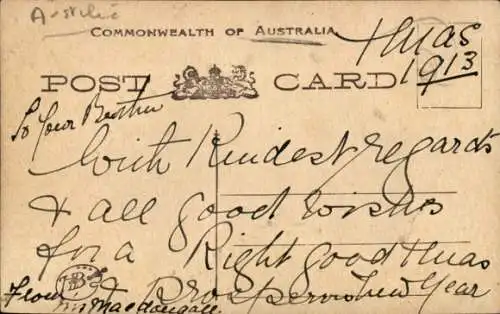 Australia
COMMONWEALTH OF AUSTRALIA
Xmas
1913
POST CARD
To Your Brother
With Kindest regards
& all good wishes
for a Right good Xmas
& Prosperous New Year
From
Macdougall